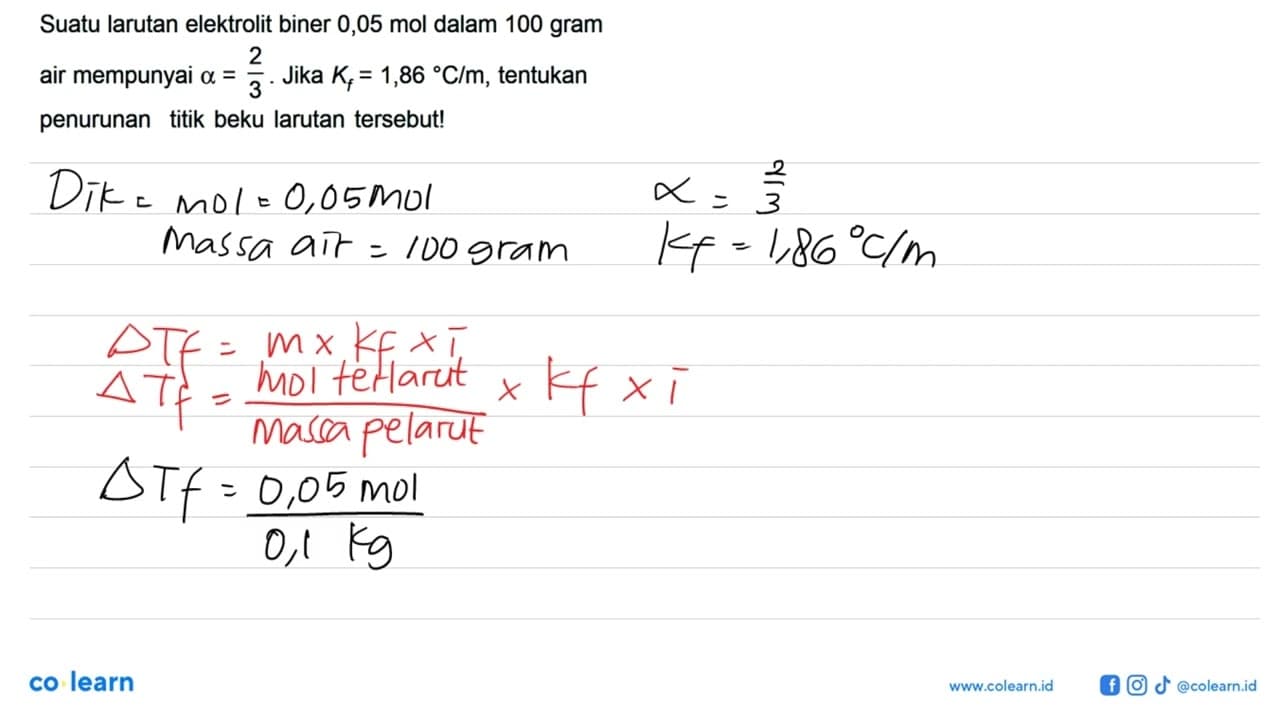 Suatu larutan elektrolit biner 0,05 mol dalam 100 gram
air mempunyai α = 2/3 . Jika Kf = 1,86 °C/m, tentukan
penurunan titik beku larutan tersebut!
Dik = mol = 0,05 mol
α = 2/3
Massa air = 100 gram
Kf = 1,86 °C/m
ΔTf = m x Kf x i
ΔTf = mol terlarut / Massa pelarut x Kf x i
ΔTf = 0,05 mol / 0,1 Kg
co learn
www.colearn.id
@colearn.id